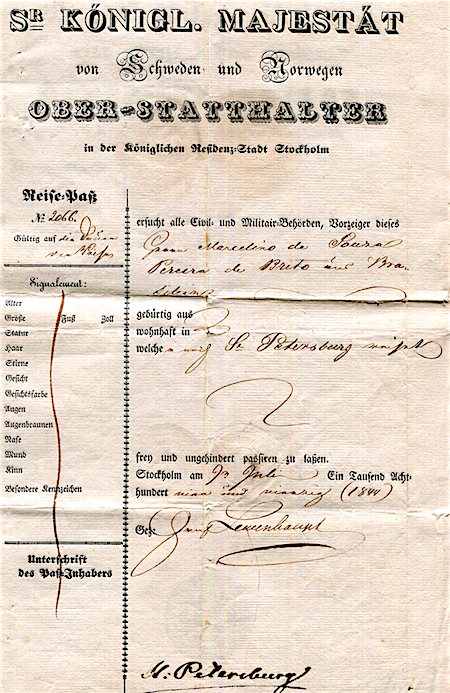 SR KÖNIGL. MAJESTÄT
von Schweden und Norwegen
OBER-STATTHALTER
in der Königlichen Residenz-Stadt Stockholm
Reise-Paß
№ 2066.
Gültig auf die
Signalement:
Alter
Größe Fuß Zoll
Statur
Haar
Stirne
Gesicht
Gesichtsfarbe
Augen
Augenbraunen
Nase
Mund
Kinn
Besondere Kennzeichen
Unterschrift
des Paß-Inhabers
ersucht alle Civil- und Militair-Behörden, Vorzeiger dieses
Marcelino de Souza
Pereira de Brito aus Bra
gebürtig aus
wohnhaft in
welche nach St Petersburg reiset
frey und ungehindert passiren zu laßen.
Stockholm am Juli Ein Tausend Acht-
hundert und (1844)
Gez: Graf Lewenhaupt
St. Petersburg